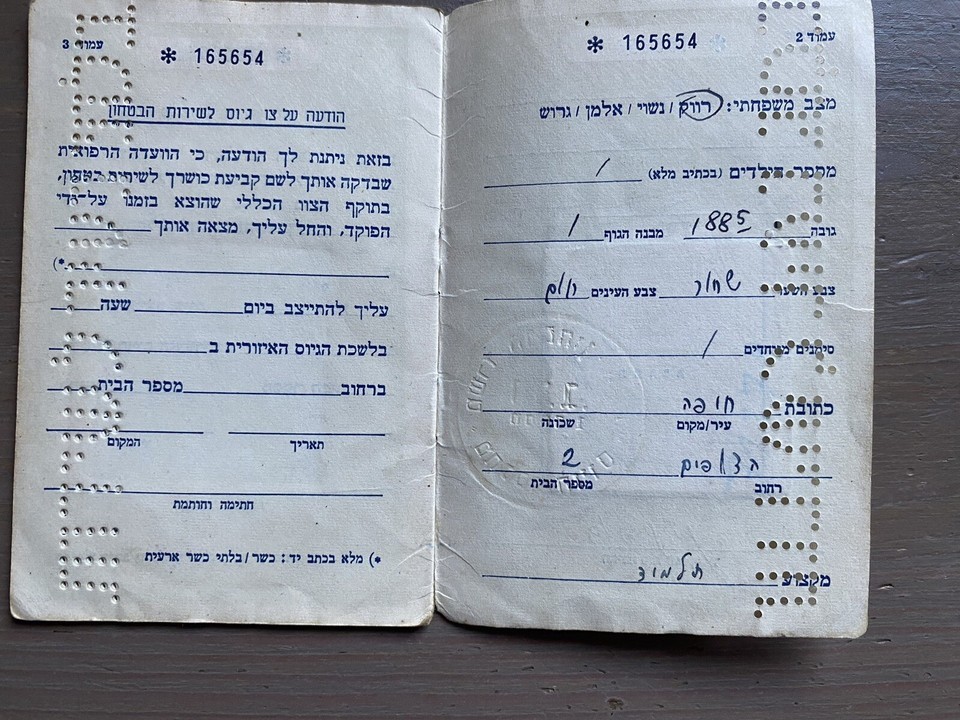 עמוד 2
* 165654
מצב משפחתי: רווק / נשוי / אלמן / גרוש
מספר הילדים (בכתיב מלא) /
גובה 1885 מבנה הגוף /
צבע השער שחור צבע העינים חום
סימנים מיוחדים /
כתובת חיפה
עיר/מקום שכונה
2
רחוב מספר הבית
מקצוע תלמיד
עמוד 3
* 165654
הודעה על צו גיוס לשירות הבטחון
בזאת ניתנת לך הודעה, כי הוועדה הרפואית
שבדקה אותך לשם קביעת כושרך לשירות בטחון,
בתוקף הצוו הכללי שהוצא בזמנו על־ידי
הפוקד, והחל עליך, מצאה אותך
(*
עליך להתייצב ביום שעה
בלשכת הגיוס האיזורית ב
ברחוב מספר הבית
תאריך המקום
חתימה וחותמת
*) מלא בכתב יד: כשר/בלתי כשר ארעית